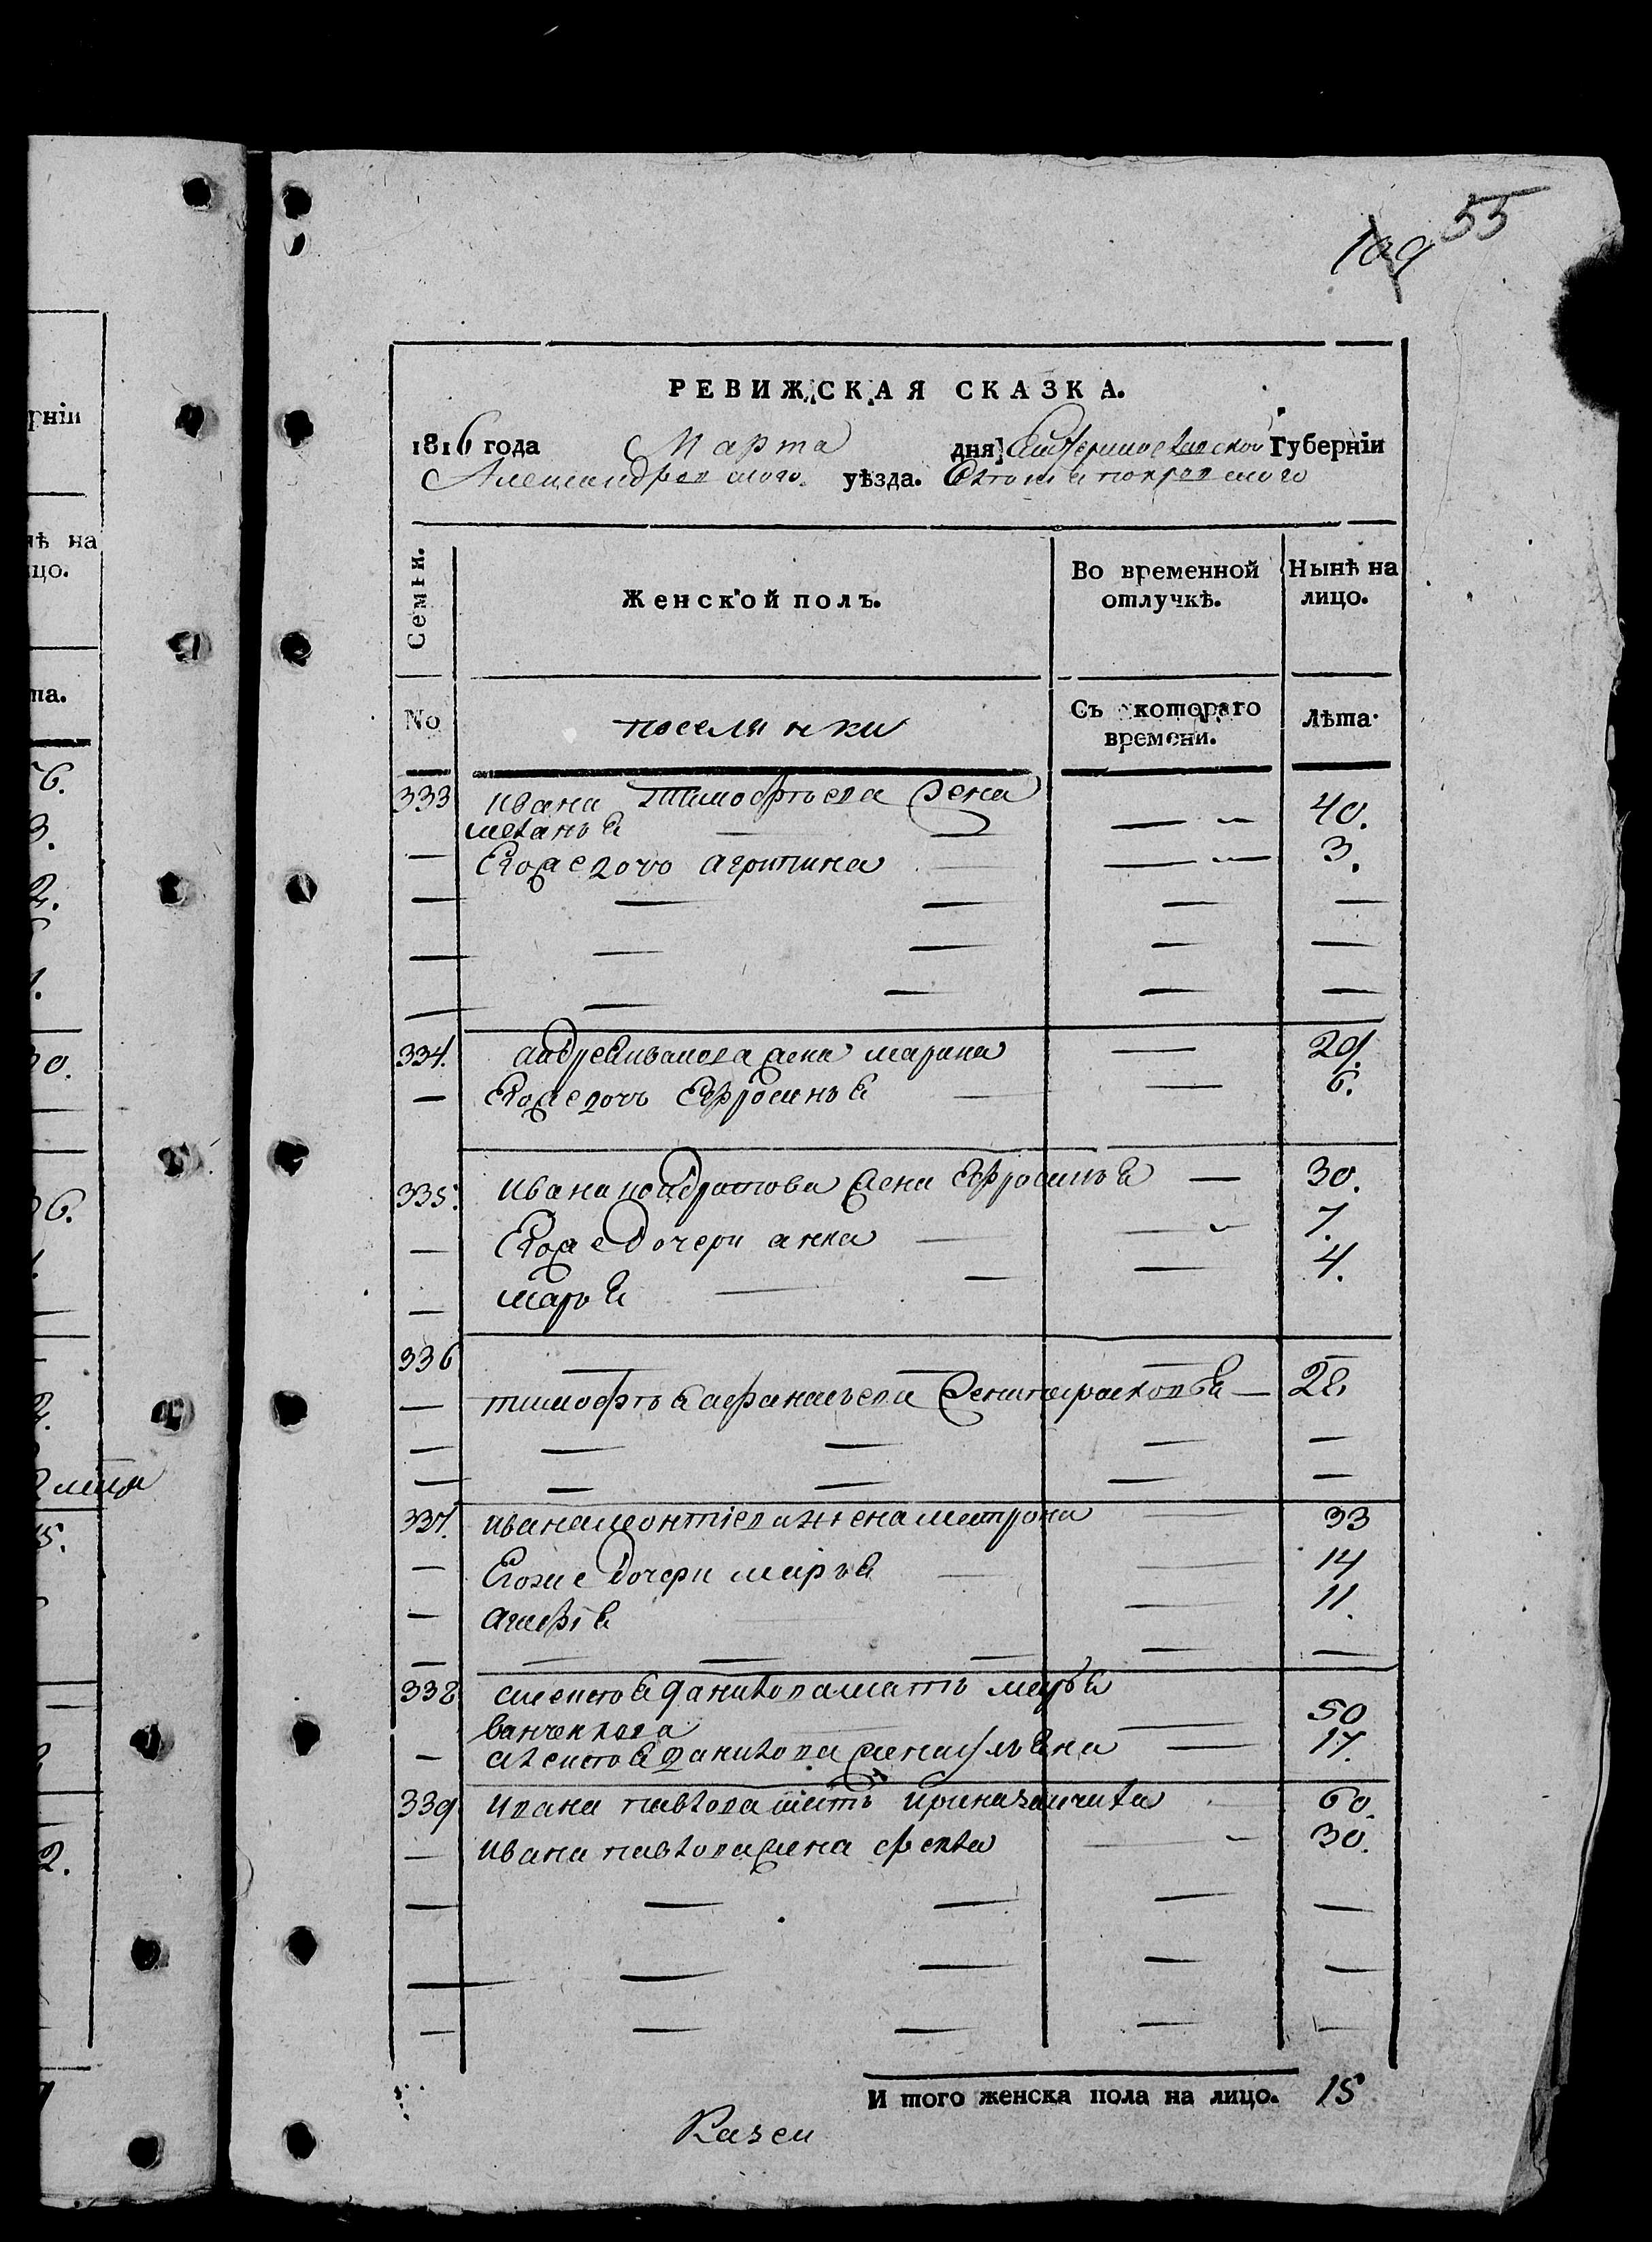 55
109
РЕВИЖСКАЯ СКАЗКА.
1816 года Марта дня Екатеринославской Губерніи
Александровского уѣзда.
Семьи. Женской полъ. Во временной отлучкѣ. Нынѣ на лицо.
No поселянки Съ котораго времени. Лѣта.
333 Ивана Тимофѣева жена
меланья — — 40.
— Егоже дочь агрипина — 3.
334. андрея иванова жена марина — 29.
— Егоже дочь Ефросинья — 6.
335. Ивана кондратова жена Ефросинья — 30.
— Егоже дочери анна — 7.
— марья — 4.
336
— тимофѣя афанасьева жена парасковья — 28.
337. ивана леонтіева жена матрона — 33
— Егоже дочери марья — 14
— агафія — 11.
338 алексѣя данилова мать марья
50
— алексѣя данилова жена ульяна — 17.
339 Ивана павлова мать ирина 60.
— Ивана павлова жена фекла — 30.
И того женска пола на лицо. 15
рніи
нѣ на
цо.
та.